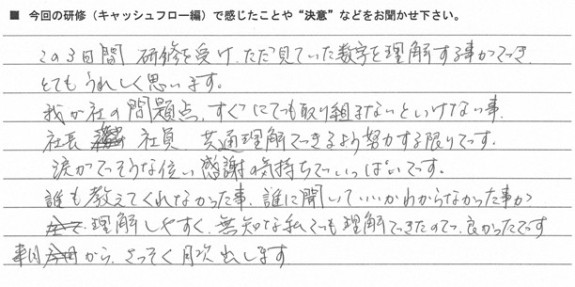 ■ 今回の研修（キャッシュフロー編）で感じたことや“決意”などをお聞かせ下さい。
この3日間 研修を受け、ただ見ていた数字を理解する事ができ、
とてもうれしく思います。
我が社の問題点、すぐにでも取り組まないといけない事、
社長 社員 共通理解できるよう努力する限りです。
涙がでそうな位い感謝の気持ちでいっぱいです。
誰も教えてくれなかった事、誰に聞いていいかわからなかった事が
理解しやすく、無知な私でも理解できたので、良かったです
明日から、さっそく月次出します